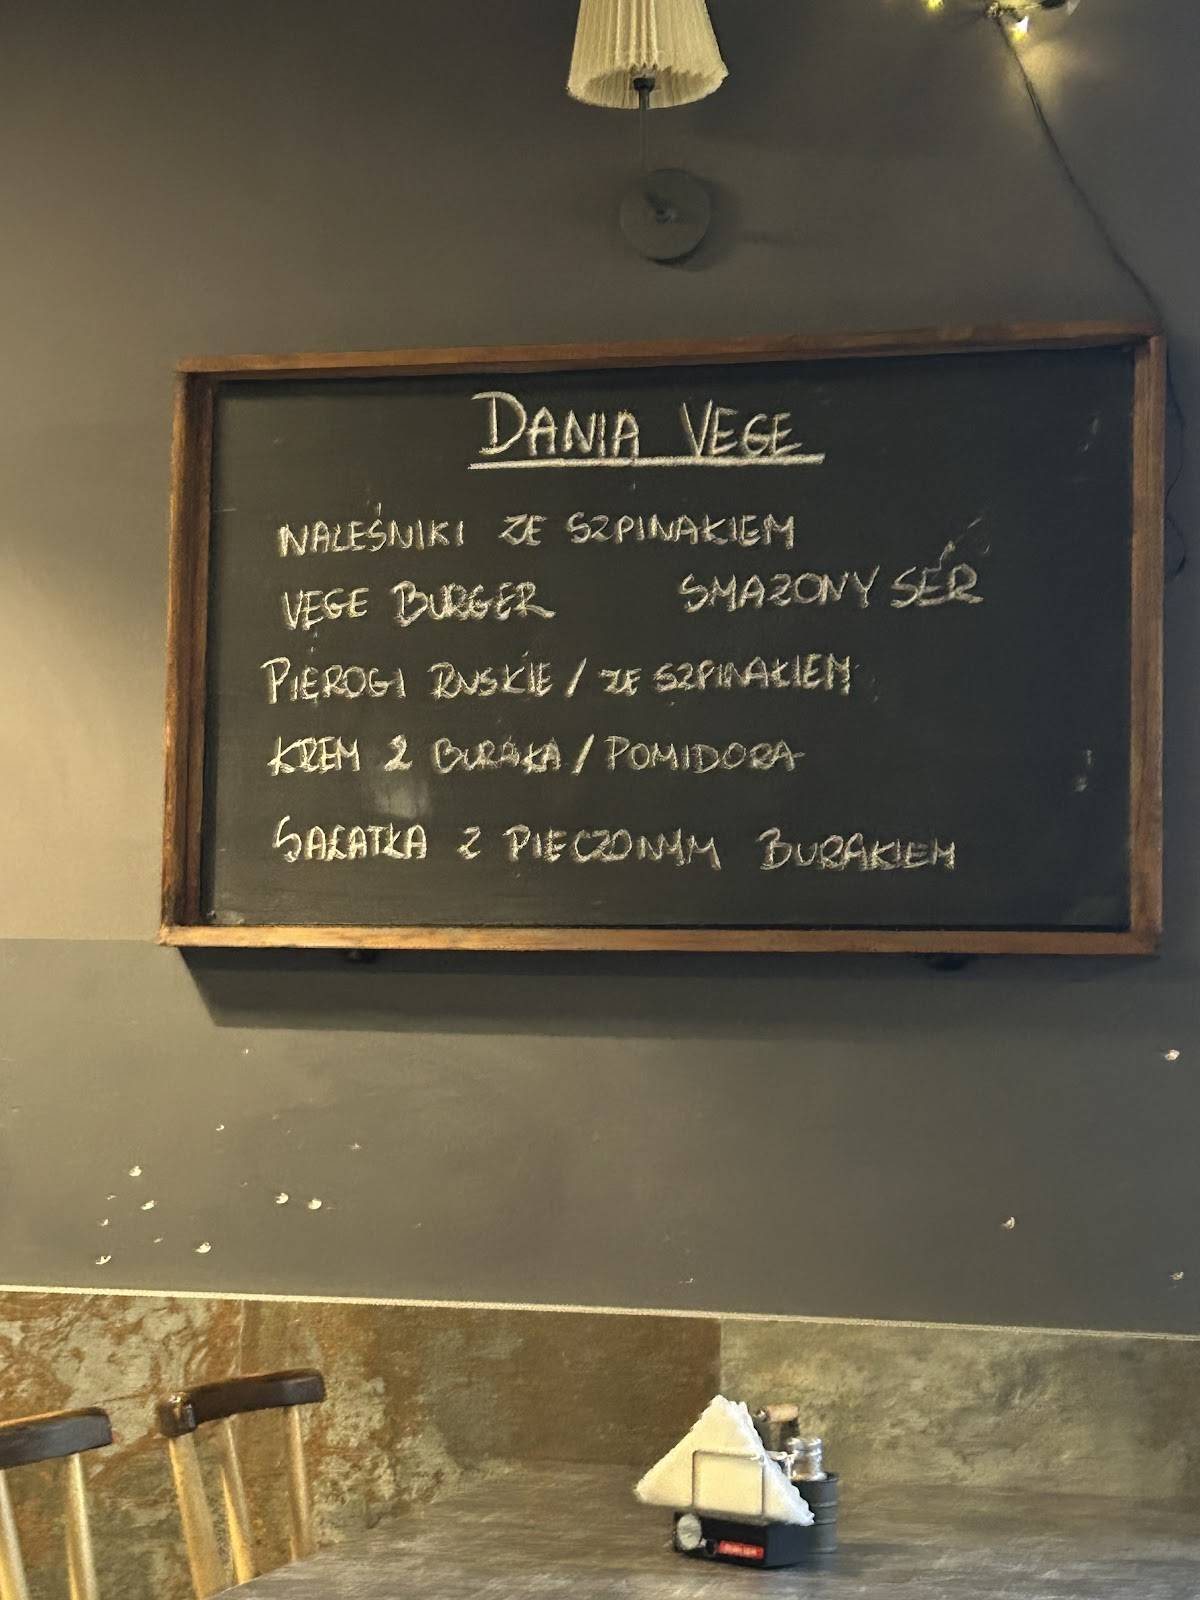 DANIA VEGE
NALEŚNIKI ZE SZPINAKIEM
VEGE BURGER SMAŻONY SER
PIEROGI RUSKIE / ZE SZPINAKIEM
KREM Z BURAKA / POMIDORA
SAŁATKA Z PIECZONYM BURAKIEM